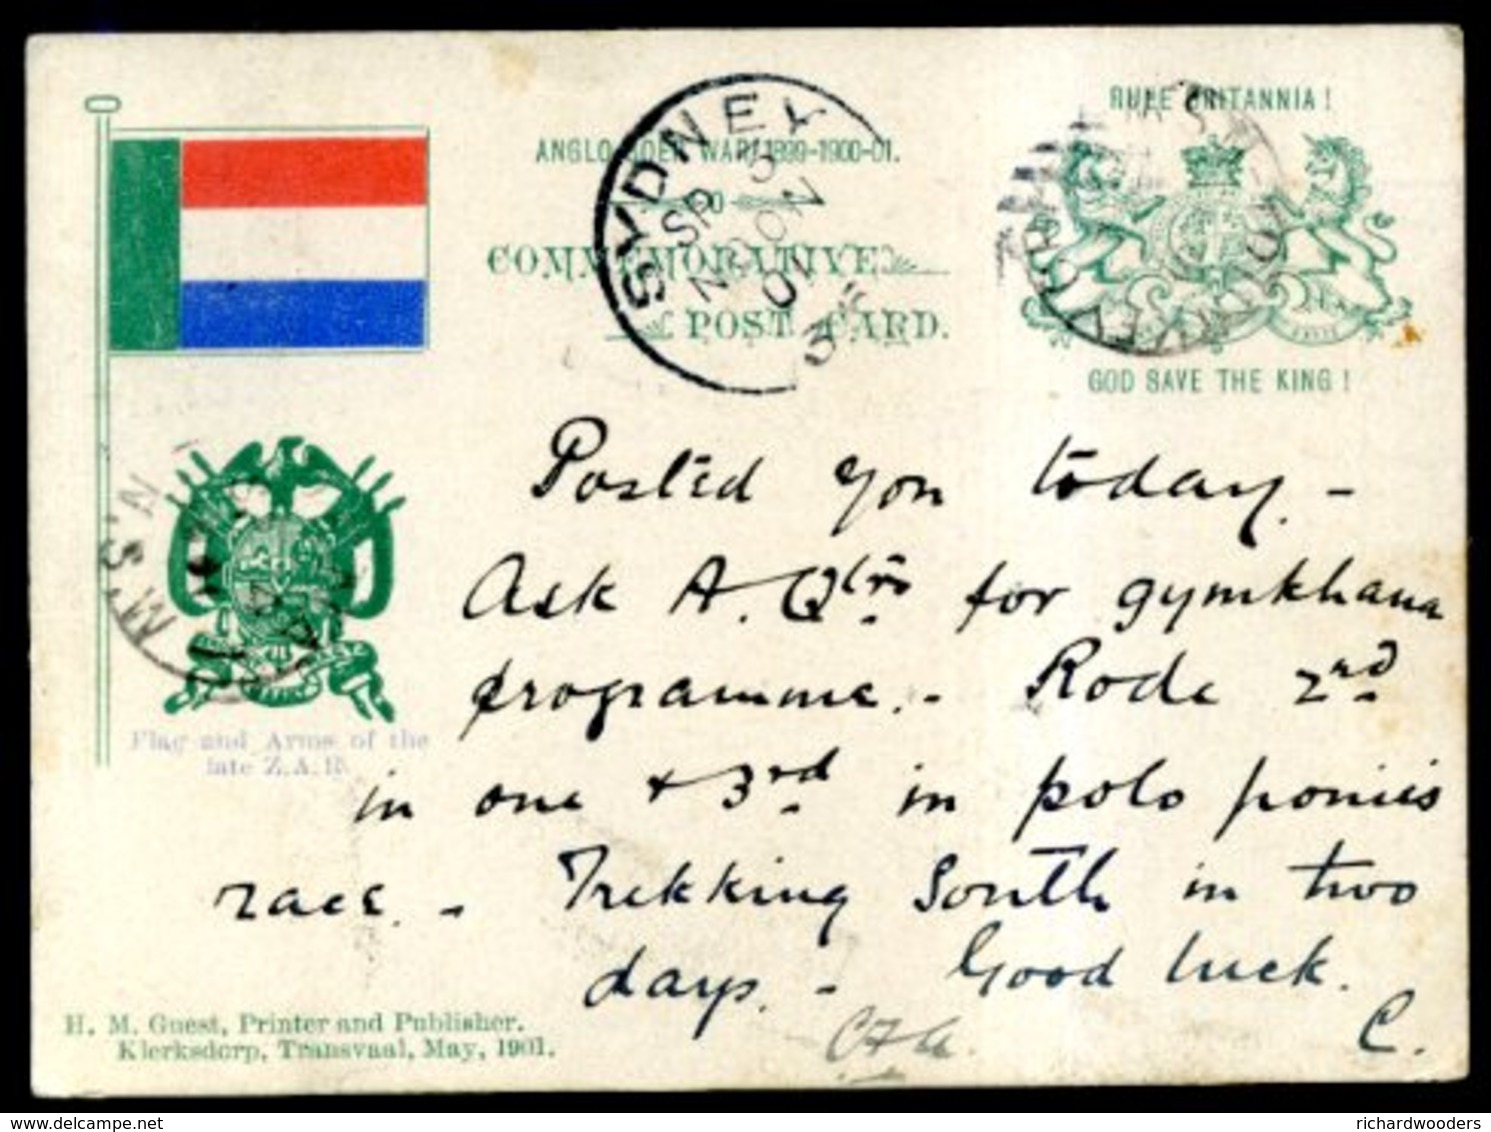 RULE BRITANNIA!
ANGLO-BOER WAR, 1899-1900-01.
TO
COMMEMORATIVE
POST CARD.
GOD SAVE THE KING!
SYDNEY
SP 3
NOON
01
N.S.W
Posted you today. -
Ask A. Qtrs for gymkhana
programme. - Rode 2nd
in one + 3rd in polo ponies
race. - Trekking South in two
days. - Good luck.
C.
Flag and Arms of the
late Z.A.R.
H. M. Guest, Printer and Publisher.
Klerksdorp, Transvaal, May, 1901.
delcampe.net
richardwooders